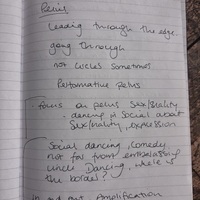 Pelvis
Leading through the edge.
going through
not circles sometimes
Performative pelvis
focus on pelvis Sex/uality
dancing is social about
Sex/uality, expression
Social dancing, comedy
not far from embarrassing
uncle Dancing, where is
the border?
in and out Amplification